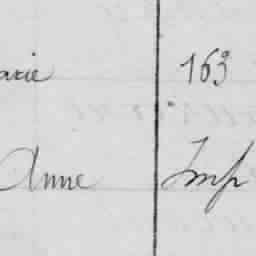 arie 163
Anne Imp